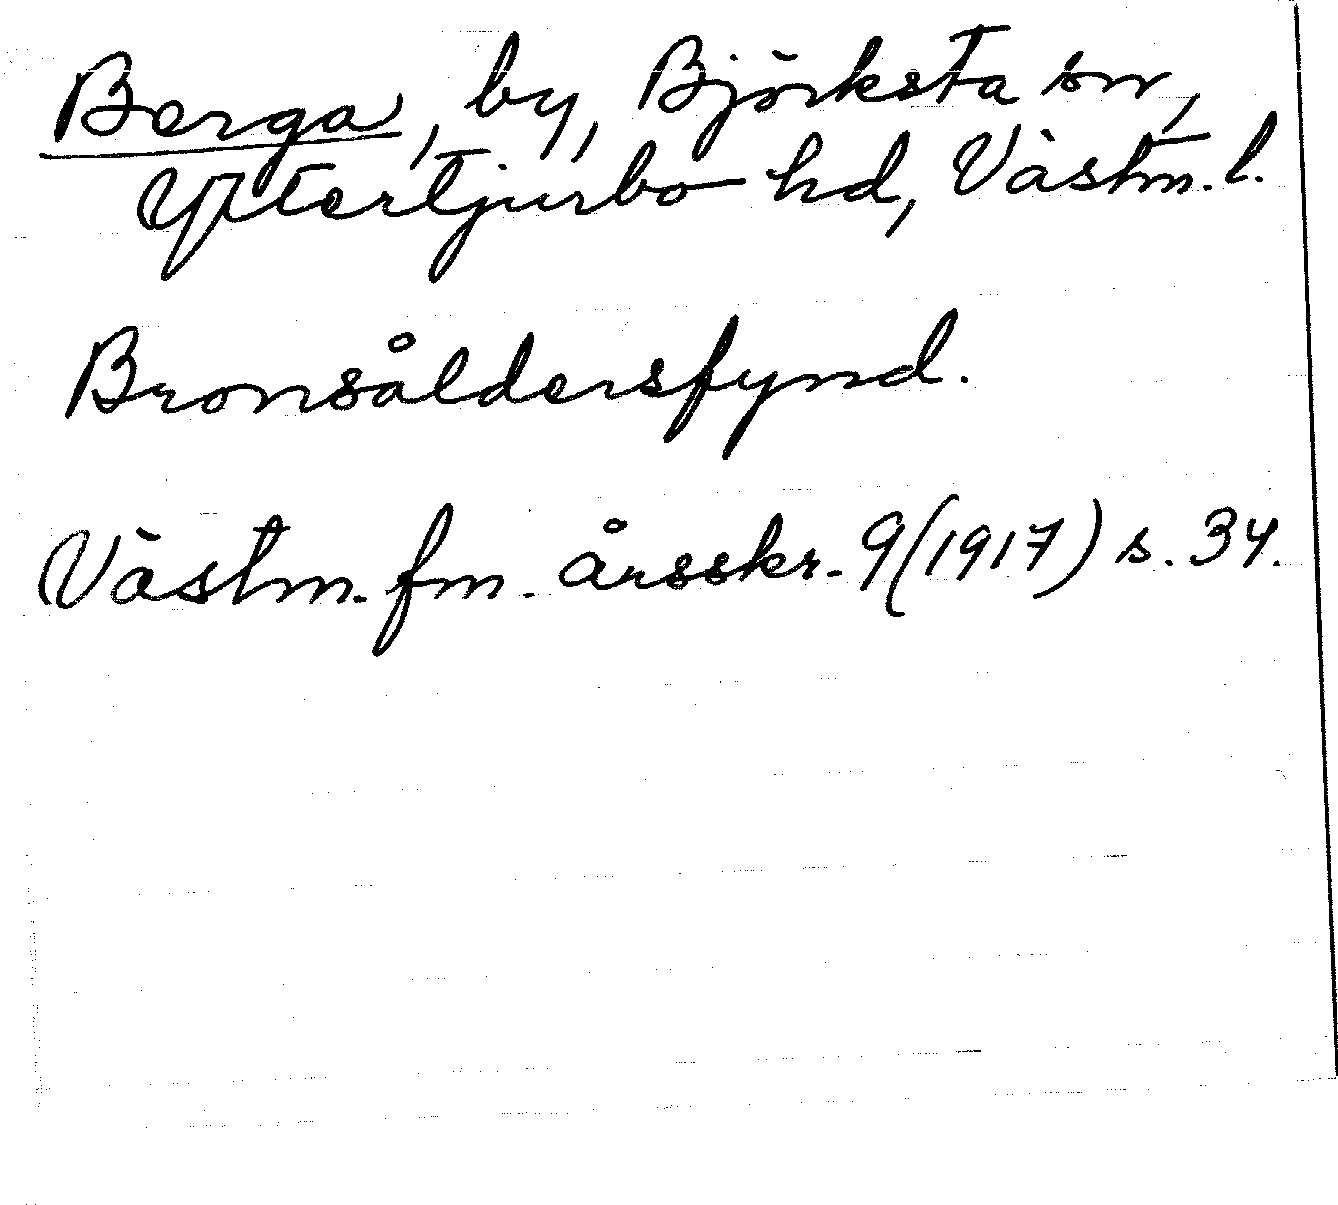 Berga, by, Björksta sn,
Yttertjurbo hd, Västm. l.
Bronsåldersfynd.
Västm. fm. årsskr. 9 (1917) s. 34.